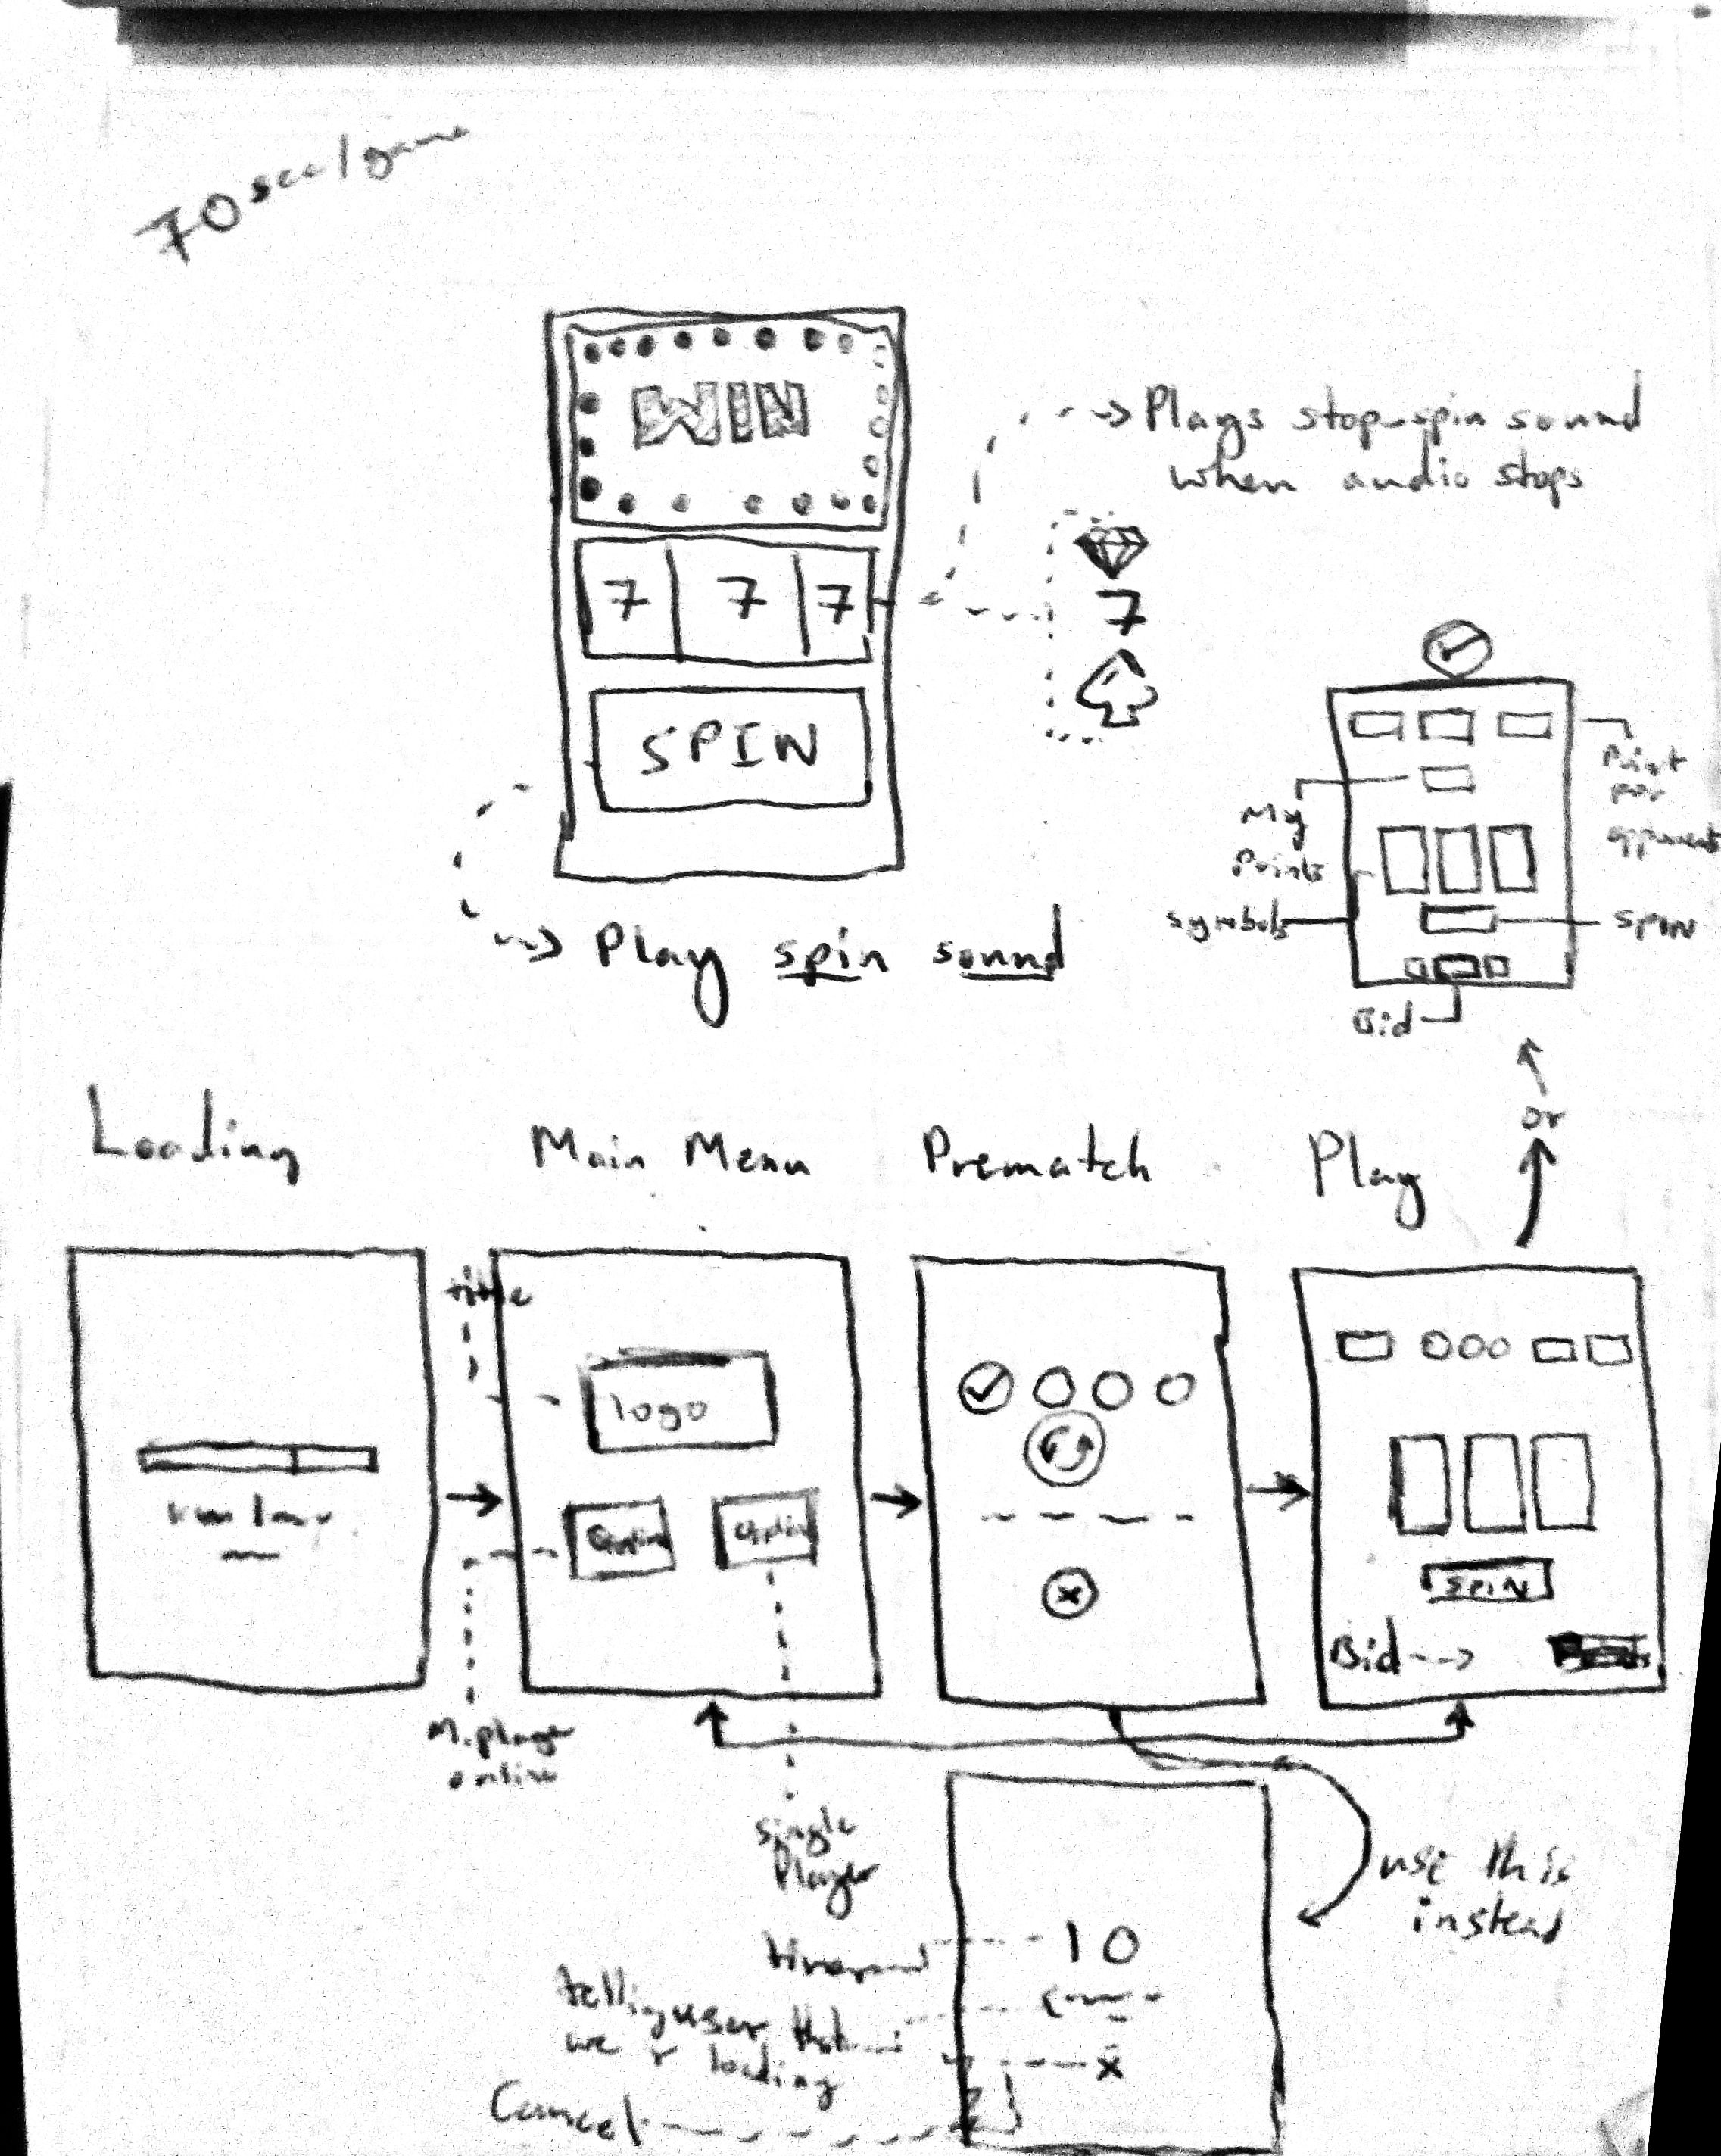 70 sec/game
WIN
7 7 7
SPIN
Plays stop-spin sound
when audio stops
7
Play spin sound
Point
per
opponent
My
Points
symbols
SPIN
Bid
or
Loading
Main Menu
Prematch
Play
title
logo
SPIN
Bid
M.player
online
single
Player
use this
instead
10
timer
telling user that
we r loading
x
Cancel